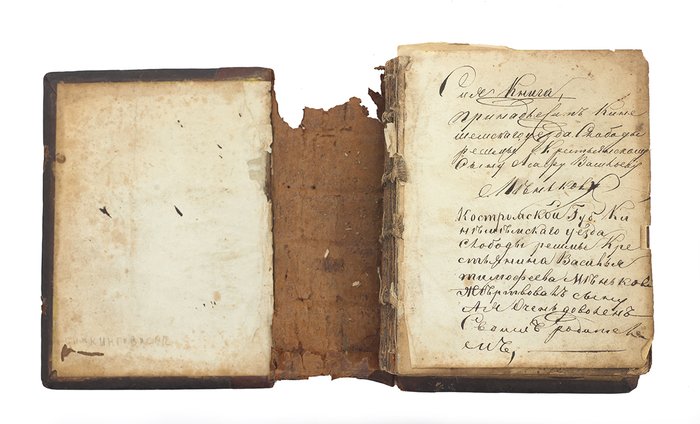 Сия Книга
принадлежитъ Кине
шемскаго уезда Слободы
решмы Крестьянскому
Сыну Василью
Мѣнькову
Костромской Губ. Ки
нешемскаго уезда
слободы решмы Кре
стьянина Василья
тимофеева Мѣнькова
Жертвовалъ сыну
А я Очень доволенъ
Своимъ Родителе
мъ,